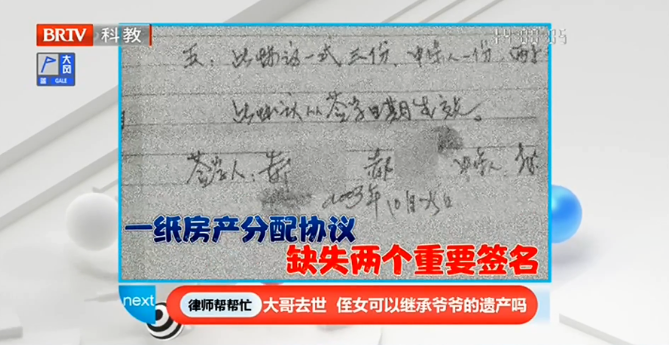 BRTV 科教
大风
蓝 GALE
五：此协议一式三份，中保人一份，两
此协议从签字日期生效。
签字人：郝 郝 中保人：
2003年10月25日
一纸房产分配协议
缺失两个重要签名
next 律师帮帮忙 大哥去世 侄女可以继承爷爷的遗产吗